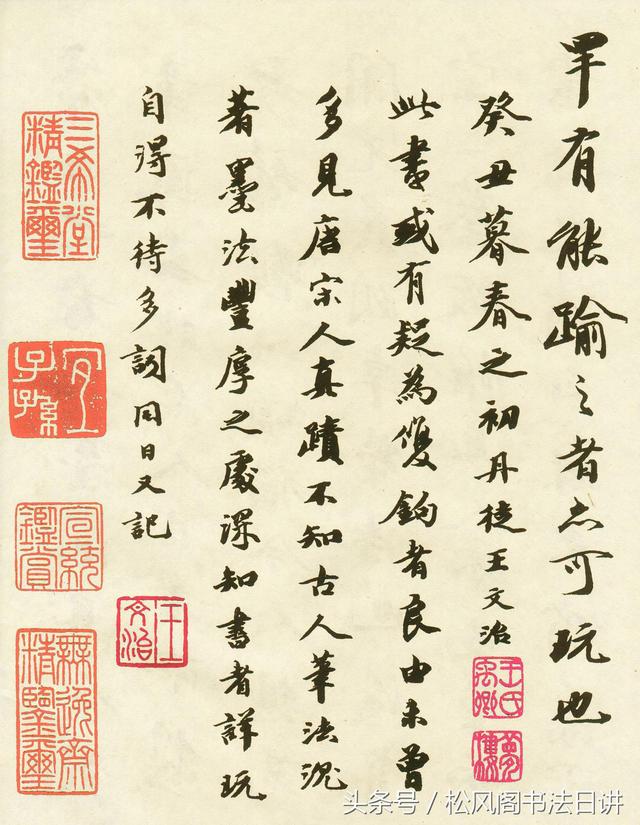 罕有能踰之者亦可玩也
癸丑暮春之初丹徒王文治
王氏禹卿
夢樓
此書或有疑為雙鈎者良由未曾
多見唐宋人真蹟不知古人筆法沉
著墨法豐厚之處深知書者詳玩
自得不待多詞同日又記
王文治
三希堂精鑑璽
宜子孫
宣統鑑賞
無逸齋精鑒璽
头条号 / 松风阁书法日讲